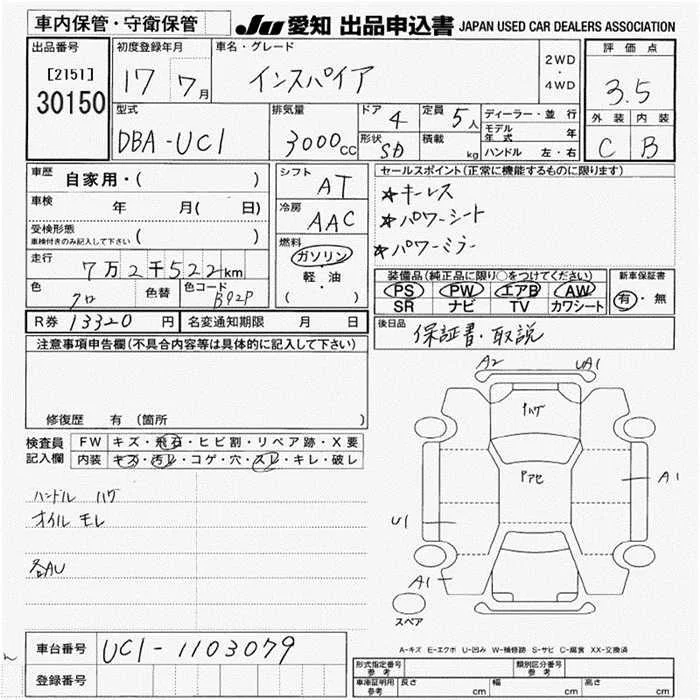 車内保管・守衛保管
JU 愛知 出品申込書 JAPAN USED CAR DEALERS ASSOCIATION
出品番号
[2151]
30150
初度登録年月
17 7月
車名・グレード
インスパイア
2WD
・
4WD
評価点
3.5
外装 内装
C B
型式
DBA-UC1
排気量
3000cc
ドア 4
形状 SD
定員 5人
積載 kg
ディーラー・並行
モデル年式 年
ハンドル 左・右
車歴 自家用・( )
車検 年 月(日)
受検形態
車検付きのみ記入して下さい ( )
走行 7万2千522km
色 クロ 色替 色コード B92P
シフト AT
冷房 AAC
燃料
ガソリン
・
軽・油
( )
セールスポイント(正常に機能するものに限ります)
☆キーレス
☆パワーシート
☆パワーミラー
装備品(純正品に限り○をつけてください)
PS PW エアB AW
SR ナビ TV カワシート
新車保証書
有・無
R券 13320円 名変通知期限 月 日
後日品 保証書・取説
注意事項申告欄(不具合内容等は具体的に記入して下さい)
修復歴 有 (箇所 )
検査員記入欄
FW キズ・飛石・ヒビ割・リペア跡・X要
内装 キズ・汚レ・コゲ・穴・スレ・キレ・破レ
ハンドル ハゲ
オイル モレ
各AU
A2 UA1
ハゲ
Pアセ
A1
U1
A1
スペア
A-キズ E-エクボ U-凹み W-補修跡 S-サビ C-腐食 XX-交換済
車台番号 UC1-1103079
登録番号
形式指定番号 参考 類別区分番号 参考
車庫証明用 参考 長さ cm 幅 cm 高さ cm